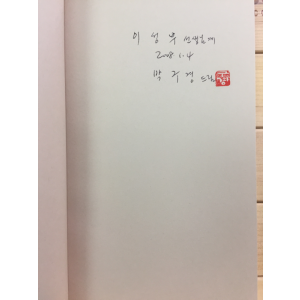 이 성 우 선생님께
2018. 1. 4
박 구 경 드림